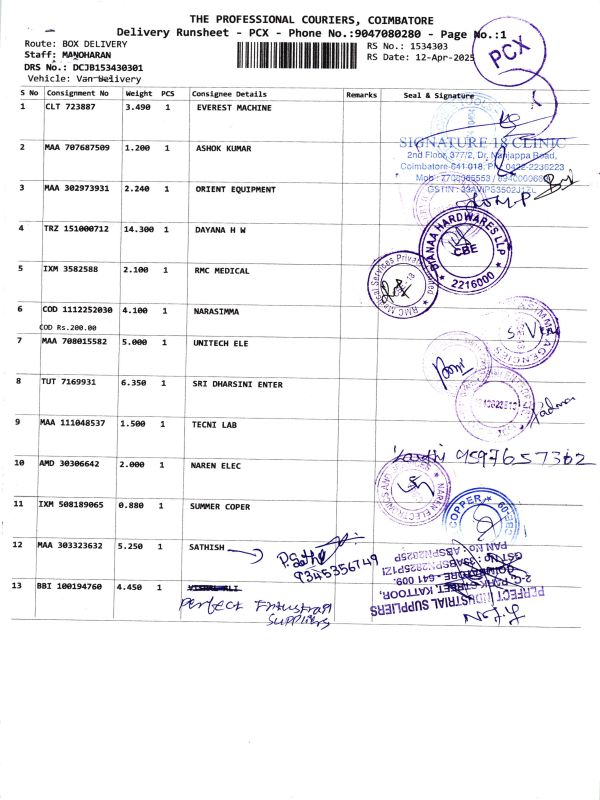 THE PROFESSIONAL COURIERS, COIMBATORE
Delivery Runsheet - PCX - Phone No.:9047080280 - Page No.:1
Route: BOX DELIVERY RS No.: 1534303
Staff: MANOHARAN RS Date: 12-Apr-2025
PCX
DRS No.: DCJB153430301
Vehicle: Van Delivery
S No Consignment No Weight PCS Consignee Details Remarks Seal & Signature
1 CLT 723887 3.490 1 EVEREST MACHINE
SIGNATURE 18 CLINIC
2 MAA 707687509 1.200 1 ASHOK KUMAR
2nd Floor, 377/2, Dr. Nanjappa Road,
Coimbatore-641 018. P: 0422-2236223
3 MAA 302973931 2.240 1 ORIENT EQUIPMENT
4 TRZ 151000712 14.300 1 DAYANA H W
DIANAA HARDWARES LLP
CBE
2216000
5 IXM 3582588 2.100 1 RMC MEDICAL
RMC Medical Services Private Limited
6 COD 1112252030 4.100 1 NARASIMMA
COD Rs.200.00
7 MAA 708015582 5.000 1 UNITECH ELE
8 TUT 7169931 6.350 1 SRI DHARSINI ENTER
Padma
9 MAA 111048537 1.500 1 TECNI LAB
9597657362
10 AMD 30306642 2.000 1 NAREN ELEC
NAREN ELECTRONICS AND
11 IXM 508189065 0.880 1 SUMMER COPER
COPPER
12 MAA 303323632 5.250 1 SATHISH
9345356749
13 BBI 100194760 4.450 1
Perfect Industrial
Suppliers
PERFECT INDUSTRIAL SUPPLIERS
KATTOOR,
COIMBATORE - 641 009.